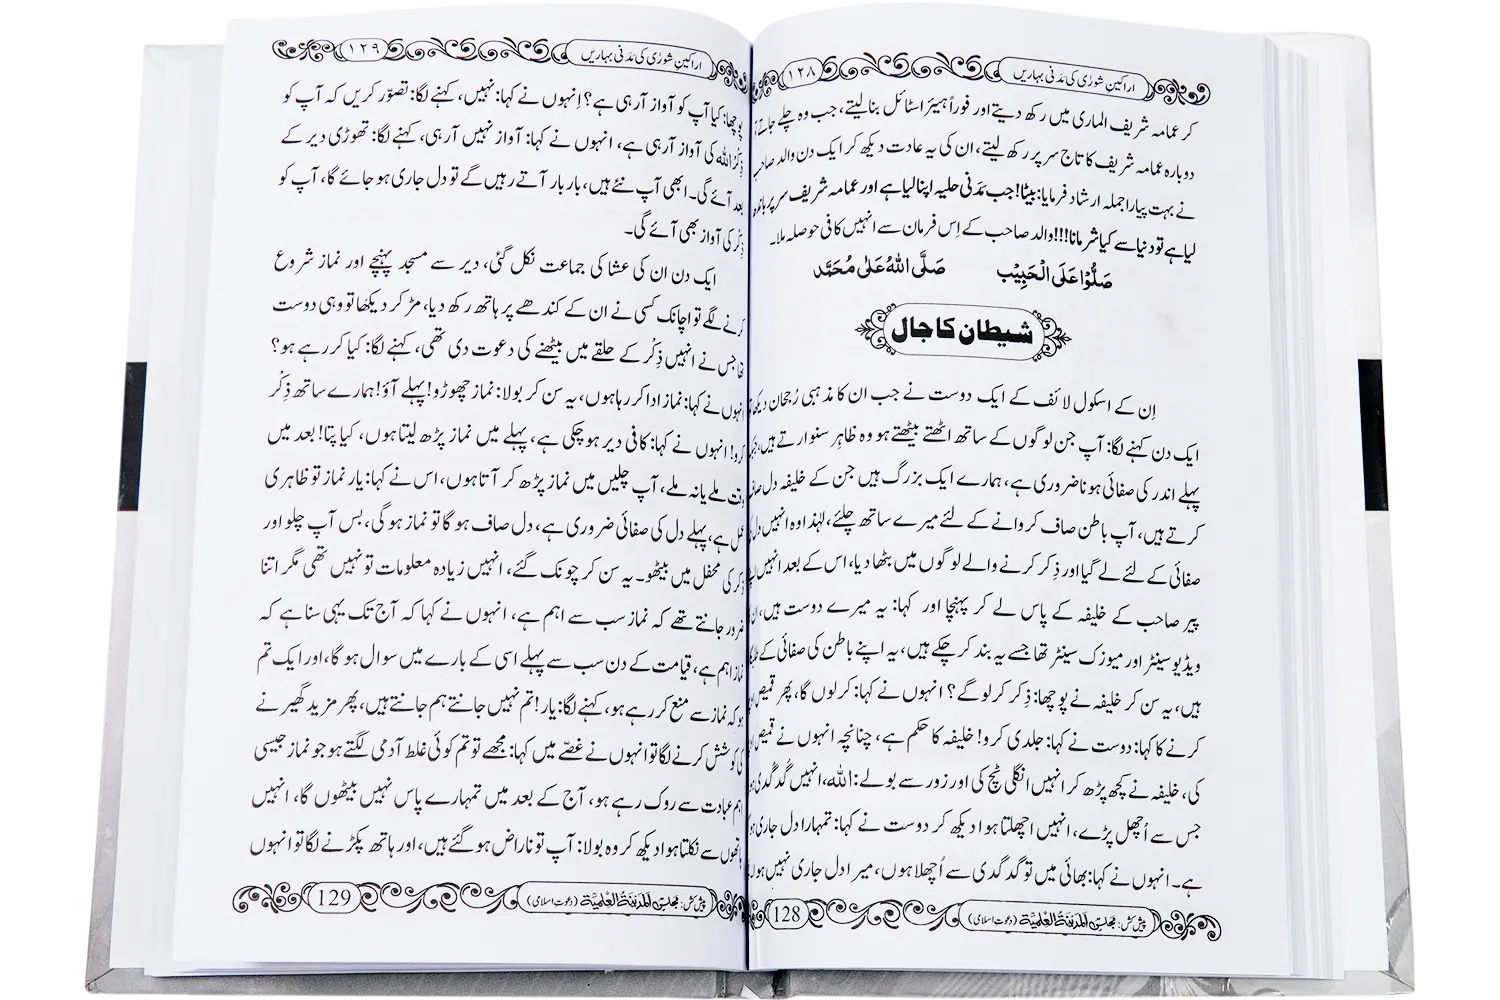 اراکین شورٰی کی مَدَنی بہاریں
۱۲۸
کر عمامہ شریف الماری میں رکھ دیتے اور فوراً ہیئر اسٹائل بنالیتے، جب وہ چلے جاتے تو
دوبارہ عمامہ شریف کا تاج سر پر رکھ لیتے، ان کی یہ عادت دیکھ کر ایک دن والد صاحب
نے بہت پیارا جملہ ارشاد فرمایا: بیٹا! جب مَدَنی حلیہ اپنالیا ہے اور عمامہ شریف سر پر باندھ
لیا ہے تو دنیا سے کیا شرمانا!!! والد صاحب کے اِس فرمان سے انہیں کافی حوصلہ ملا۔
صَلُّوْا عَلَی الْحَبِیْب صَلَّی اللہُ عَلٰی مُحَمَّد
شیطان کا جال
اِن کے اسکول لائف کے ایک دوست نے جب ان کا مذہبی رُجحان دیکھا تو
ایک دن کہنے لگا: آپ جن لوگوں کے ساتھ اٹھتے بیٹھتے ہو وہ ظاہر سنوارتے ہیں،
پہلے اندر کی صفائی ہونا ضروری ہے، ہمارے ایک بزرگ ہیں جن کے خلیفہ دل صاف
کرتے ہیں، آپ باطن صاف کروانے کے لئے میرے ساتھ چلئے، لہٰذا وہ انہیں دل کی
صفائی کے لئے لے گیا اور ذِکر کرنے والے لوگوں میں بٹھا دیا، اس کے بعد انہیں
پیر صاحب کے خلیفہ کے پاس لے کر پہنچا اور کہا: یہ میرے دوست ہیں،
ویڈیو سینٹر اور میوزک سینٹر تھا جسے یہ بند کر چکے ہیں، یہ اپنے باطن کی صفائی کے
ہیں، یہ سن کر خلیفہ نے پوچھا: ذِکر کر لو گے؟ انہوں نے کہا: کرلوں گا، پھر قمیص
کرنے کا کہا: دوست نے کہا: جلدی کرو! خلیفہ کا حکم ہے، چنانچہ انہوں نے قمیص
کی، خلیفہ نے کچھ پڑھ کر انہیں انگلی ٹچ کی اور زور سے بولے: اللہ، انہیں گُدگُدی
جس سے اُچھل پڑے، انہیں اچھلتا ہوا دیکھ کر دوست نے کہا: تمہارا دل جاری
ہے۔ انہوں نے کہا: بھائی میں تو گدگدی سے اُچھلا ہوں، میرا دل جاری نہیں ہوا۔
پیش کش: مجلس اَلْمَدِیْنَۃُ الْعِلْمِیَّۃ (دعوت اسلامی)
128
اراکین شورٰی کی مَدَنی بہاریں
۱۲۹
پوچھا: کیا آپ کو آواز آرہی ہے؟ اِنہوں نے کہا: نہیں، کہنے لگا: تصوّر کریں کہ آپ کو
ذِکْرُ اللہ کی آواز آرہی ہے، انہوں نے کہا: آواز نہیں آرہی، کہنے لگا: تھوڑی دیر کے
بعد آئے گی۔ ابھی آپ نئے ہیں، بار بار آتے رہیں گے تو دل جاری ہو جائے گا، آپ کو
ذِکْر کی آواز بھی آئے گی۔
ایک دن ان کی عشا کی جماعت نکل گئی، دیر سے مسجد پہنچے اور نماز شروع
کرنے لگے تو اچانک کسی نے ان کے کندھے پر ہاتھ رکھ دیا، مڑ کر دیکھا تو وہی دوست
تھا جس نے انہیں ذِکْر کے حلقے میں بیٹھنے کی دعوت دی تھی، کہنے لگا: کیا کر رہے ہو؟
انہوں نے کہا: نماز ادا کر رہا ہوں، یہ سن کر بولا: نماز چھوڑو! پہلے آؤ! ہمارے ساتھ ذِکْر
کرو! انہوں نے کہا: کافی دیر ہو چکی ہے، پہلے میں نماز پڑھ لیتا ہوں، کیا پتا! بعد میں
وقت ملے یا نہ ملے، آپ چلیں میں نماز پڑھ کر آتا ہوں، اس نے کہا: یار نماز تو ظاہری
عمل ہے، پہلے دل کی صفائی ضروری ہے، دل صاف ہو گا تو نماز ہو گی، بس آپ چلو اور
ذِکر کی محفل میں بیٹھو۔ یہ سن کر چونک گئے، انہیں زیادہ معلومات تو نہیں تھی مگر اتنا
ضرور جانتے تھے کہ نماز سب سے اہم ہے، انہوں نے کہا کہ آج تک یہی سنا ہے کہ
نماز اہم ہے، قیامت کے دن سب سے پہلے اسی کے بارے میں سوال ہو گا، اور ایک تم
ہو کہ نماز سے منع کر رہے ہو، کہنے لگا: یار! تم نہیں جانتے ہم جانتے ہیں، پھر مزید گھیرنے
کی کوشش کرنے لگا تو انہوں نے غصّے میں کہا: مجھے تو تم کوئی غلط آدمی لگتے ہو جو نماز جیسی
اہم عبادت سے روک رہے ہو، آج کے بعد میں تمہارے پاس نہیں بیٹھوں گا، انہیں
ہاتھوں سے نکلتا ہوا دیکھ کر وہ بولا: آپ تو ناراض ہو گئے ہیں، اور ہاتھ پکڑنے لگا تو انہوں
پیش کش: مجلس اَلْمَدِیْنَۃُ الْعِلْمِیَّۃ (دعوت اسلامی)
129